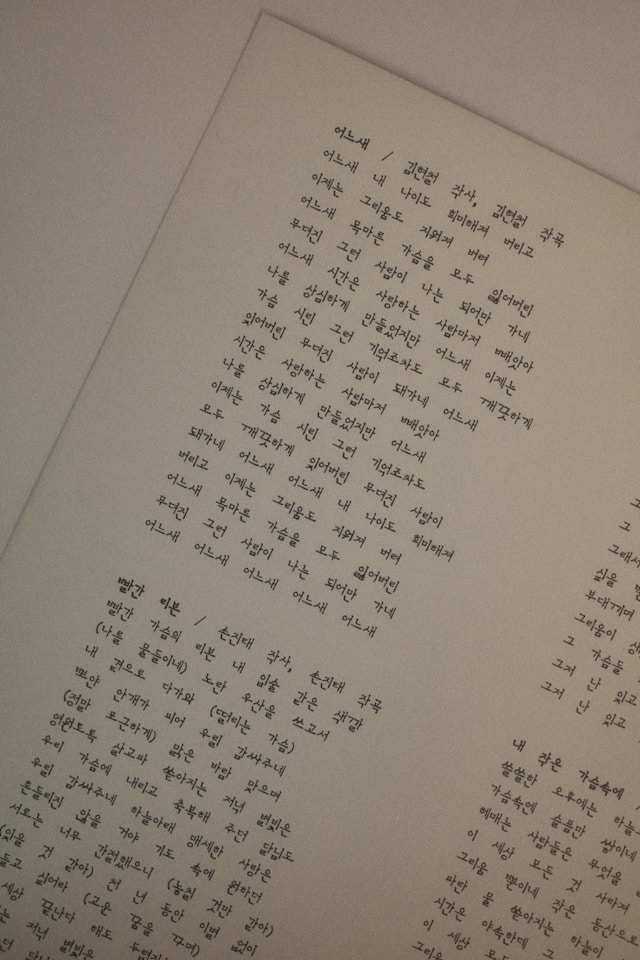 어느새 / 김현철 작사, 김현철 작곡
어느새 내 나이도 희미해져 버리고
이제는 그리움도 지워져 버려
어느새 목마른 가슴을 모두 잃어버린
무뎌진 그런 사람이 나는 되어만 가네
어느새 시간은 사랑하는 사람마저 빼앗아
나를 상심하게 만들었지만 어느새 이제는
가슴 시린 그런 기억조차도 모두 깨끗하게
잊어버린 무뎌진 사람이 돼가네 어느새
시간은 사랑하는 사람마저 빼앗아
나를 상심하게 만들었지만 어느새
이제는 가슴 시린 그런 기억조차도
모두 깨끗하게 잊어버린 무뎌진 사람이
돼가네 어느새 어느새 내 나이도 희미해져
버리고 이제는 그리움도 지워져 버려
어느새 목마른 가슴을 모두 잃어버린
무뎌진 그런 사람이 나는 되어만 가네
어느새 어느새 어느새 어느새 어느새
빨간 리본 / 손진태 작사, 손진태 작곡
빨간 가슴의 리본 내 입술 같은 색깔
(나를 물들이네) 노란 우산을 쓰고서
내 곁으로 다가와 (떨리는 가슴)
뽀얀 안개가 피어 우릴 감싸주네
(정말 포근하게) 맑은 바람 맞으며
영원토록 살고파 쏟아지는 저녁 별빛은
우리 가슴에 내리고 축복해 주던 달님도
우릴 감싸주네 하늘아래 맹세한 사랑은
흔들리진 않을 거야 기도 속에 원하던
서로는 너무 간절했으니 (놓칠 것만 같아)
(잊을 것 같아) 천 년 동안 이별 없이
싶어라 (고운 꿈을 꾸며)
세상 끝난다 해도
저녁 별빛은
그
그래서
싫을
부대끼며
그리움이
그 가슴들
그저 난 있고
그저 난 있고
내 작은 가슴속에 /
쓸쓸한 오후에는 하늘
가슴속엔 슬픔만 쌓이네
헤매는 사람들은 무엇을
이 세상 모든 것 사라져
그리움 뿐이네 작은 동산으로
파란 물 쏟아지는 하늘이
시간은 야속한데 그
이 세상 모든
그리움